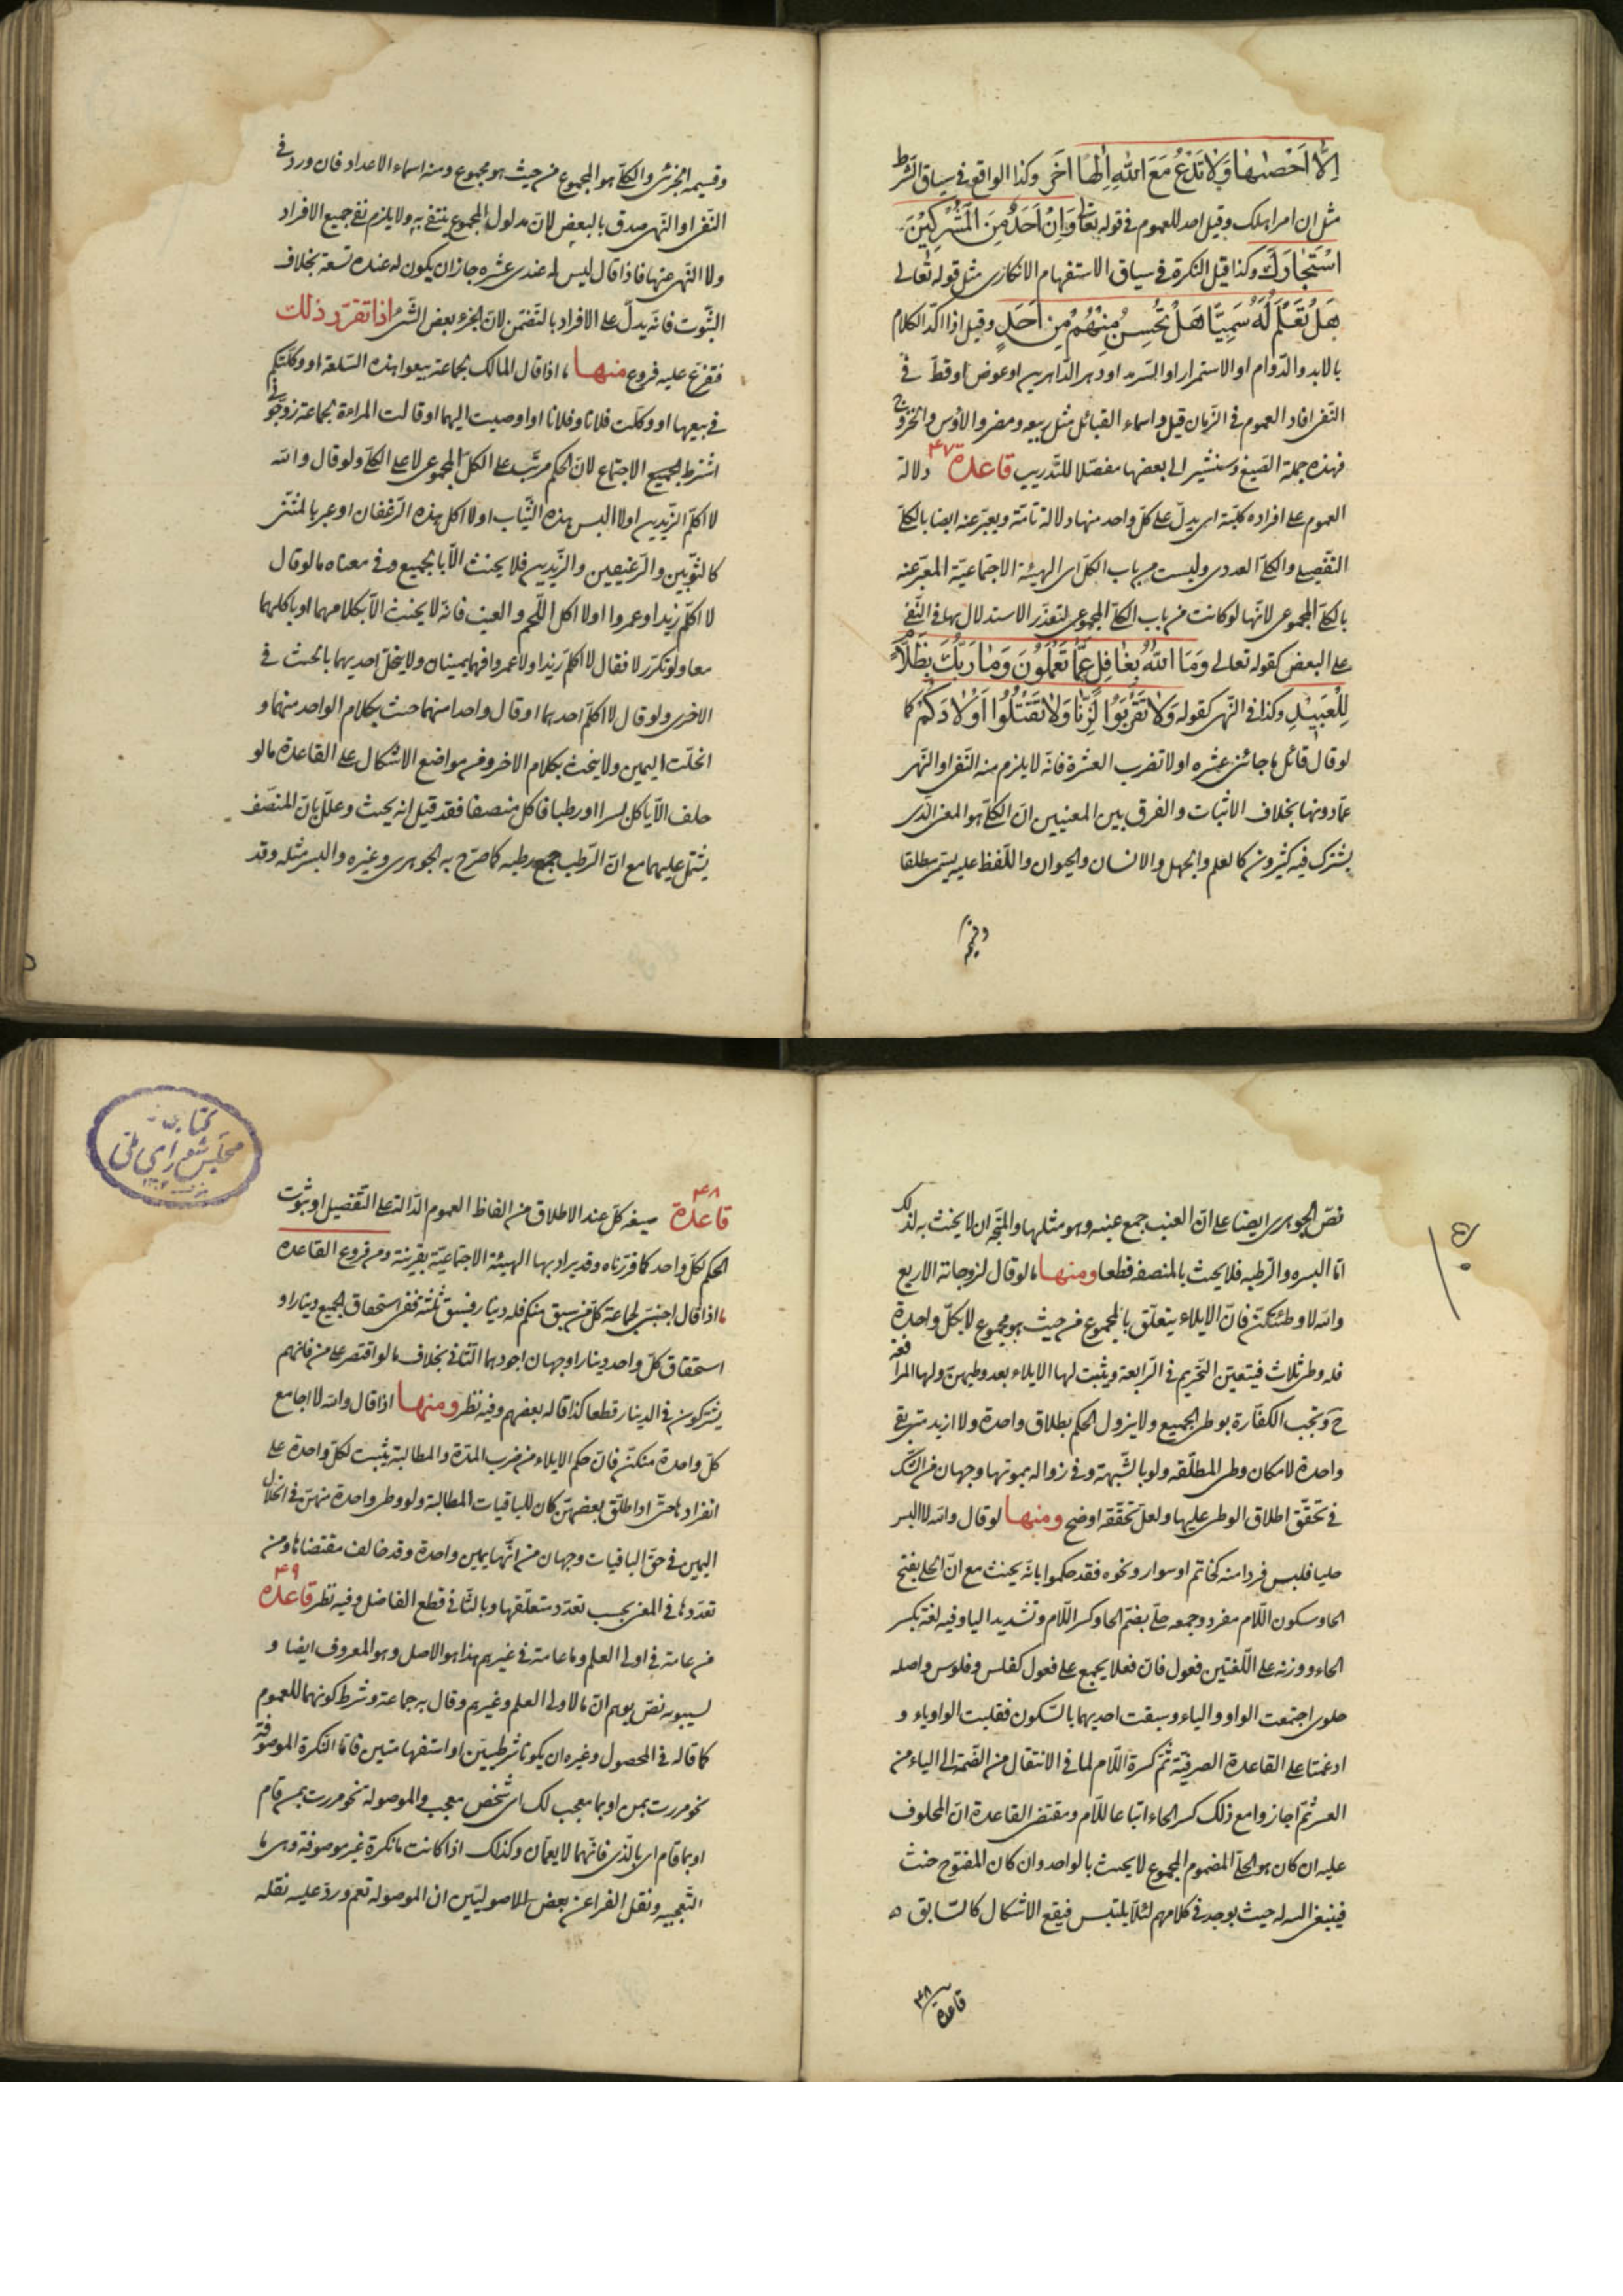 إِلَّا أَحْصٰيهَا وَلَا تَدْعُ مَعَ اللَّهِ إِلٰهًا آخَرَ وكذا الواقع في سياق الشرط
مثل ان امرا هلك وقيل احد للعموم في قوله تعالى وَاِنْ اَحَدٌ مِنَ الْمُشْرِكِينَ
اسْتَجَارَكَ وكذا قيل النكرة في سياق الاستفهام الانكارى مثل قوله تعالى
هَلْ تَعْلَمُ لَهُ سَمِيًّا هَلْ تُحِسُّ مِنْهُمْ مِنْ اَحَدٍ وقيل اذا اكد الكلام
بالابد والدوام او الاستمرار او السرمد او دهر الداهرين او عوض او قط في
النفى افاد العموم في الزمان قيل واسماء القبائل مثل ربيعه ومضر والاوس والخزرج
فهذه جملة الصيغ وسنشير الى بعضها مفصلا للتدريب قاعدة ۴۷ دلالة
العموم على افراده كلية اى يدل على كل واحد منها دلالة تامة ويعبر عنه ايضا بالكلى
التفصيلى والكلى العددى وليست من باب الكل اى الهيئة الاجتماعية المعبر عنه
بالكلى المجموعى لانها لو كانت من باب الكلى المجموعى لتعذر الاستدلال بها فى النفى
على البعض كقوله تعالى وَمَا اللَّهُ بِغَافِلٍ عَمَّا تَعْمَلُونَ وَمَا رَبُّكَ بِظَلَّامٍ
لِلْعَبِيدِ وكذا فى النهى كقوله وَلَا تَقْرَبُوا الزِّنَا وَلَا تَقْتُلُوا اَوْلَادَكُمْ كما
لو قال قائل ما جائنى عشره او لا تضرب العشرة فانه لا يلزم منه النفى او النهى
عما دونها بخلاف الاثبات والفرق بين المعنيين ان الكلى هو المعنى الذى
يشترك فيه كثيرون كالعلم والجهل والانسان والحيوان واللفظ عليه يسمى مطلقا
وقسيمه
وقسيمه الجزئى والكلى هو المجموع من حيث هو مجموع ومنه اسماء الاعداد فان ورد فى
النفى او النهى صدق بالبعض لان مدلول المجموع ينتفى به ولا يلزم نفى جميع الافراد
ولا النهى عنها فاذا قال ليس له عندى عشره جاز ان يكون له عنده تسعة بخلاف
الثبوت فانه يدل على الافراد بالتضمن لان الجزء بعض الشئ اذا تقرر ذلك
فتفرع عليه فروع منها ما اذا قال المالك لجماعة بيعوا هذه السلعة او وكلتكم
فى بيعها او وكلت فلانا وفلانا او اوصيت اليهما او قالت المراءة لجماعة زوجونى
اشترط لجميع الاجتماع لان الحكم مرتب على الكل المجموعى لا على الكلى ولو قال والله
لا اكلم الزيدين او لا البس هذه الثياب او لا اكل هذه الرغفان او عبر بالمثنى
كالثوبين والرغيفين والزيدين فلا يحنث الا بالجميع وفى معناه ما لو قال
لا اكلم زيدا وعمروا او لا اكل اللحم والعنب فانه لا يحنث الا بكلامهما او باكلهما
معا ولو تكرر لا فقال لا اكلم زيدا ولا عمروا فهما يمينان ولا ينحل احديهما بالحنث فى
الاخرى ولو قال لا اكلم احدهما او قال واحدا منهما حنث بكلام الواحد منهما و
انحلت اليمين ولا يحنث بكلام الاخر ومن مواضع الاشكال على القاعدة ما لو
حلف الا ياكل بسرا او رطبا فاكل منصفا فقد قيل انه يحنث وعلل بان المنصف
يشتمل عليهما مع ان الرطب جمع رطبه كما صرح به الجوهرى وغيره والبسر مثله وقد
نص الجوهرى ايضا على ان العنب جمع عنبه وهو مثلها والمتجه ان لا يحنث به لذلك
اما البسره والرطبه فلا يحنث بالمنصفه قطعا ومنها ما لو قال لزوجاته الاربع
والله لا وطئتكن فان الايلاء يتعلق بالمجموع من حيث هو مجموع لا بكل واحدة
فله وطى ثلاث فيتعين التحريم فى الرابعة ويثبت لها الايلاء بعد وطيهن ولها المرافعة
ح وتجب الكفارة بوطى الجميع ولا يزول الحكم بطلاق واحدة ولا ازيد متى بقى
واحدة لامكان وطى المطلقه ولو بالشبهة وفى زواله بموتها وجهان من الشك
فى تحقق اطلاق الوطى عليها ولعل تحققه اوضح ومنها لو قال والله لا البس
حليا فلبس فردا منه كخاتم او سوار ونحوه فقد حكموا بانه يحنث مع ان الحلى بفتح
الحا وسكون اللام مفرد وجمعه حلى بضم الحا وكسر اللام وتشديد اليا وفيه لغة بكسر
الحاء ووزنه على اللغتين فعول فان فعلا يجمع على فعول كفلس وفلوس واصله
حلوى اجتمعت الواو والياء وسبقت احديهما بالسكون فقلبت الواو ياء و
ادغمتا على القاعدة الصرفية ثم كسرة اللام لما فى الانتقال من الضمة الى الياء من
العسر ثم اجازوا مع ذلك كسر الحاء اتباعا للام ومقتضى القاعدة ان المحلوف
عليه ان كان هو الحلى المضموم المجموع لا يحنث بالواحد وان كان المفتوح حنث
فينبغى التنبه له حيث يوجد فى كلامهم لئلا يلتبس فيقع الاشكال كالسابق ه
قاعدة ۴۸
قاعدة ۴۸ صيغه كل عند الاطلاق من الفاظ العموم الدالة على التفصيل او ثبوت
الحكم لكل واحد كما قررناه وقد يراد بها الهيئة الاجتماعية بقرينة ومن فروع القاعدة
ما اذا قال اجنبى لجماعة كل من سبق منكم فله دينار فسبق ثلثة ففى استحقاق الجميع دينارا و
استحقاق كل واحد دينارا وجهان اجودهما الثانى بخلاف ما لو اقتصر على من فانهم
يشتركون فى الدينار قطعا كذا قاله بعضهم وفيه نظر ومنها اذا قال والله لا اجامع
كل واحدة منكن فان حكم الايلاء من ضرب المدة والمطالبة يثبت لكل واحدة على
انفرادها حتى اذا طلق بعضهن كان للباقيات المطالبة ولو وطى واحدة منهن فى انحلال
اليمين فى حق الباقيات وجهان من انها يمين واحدة وقد خالف مقتضاها ومن
تعددها فى المعنى بحسب تعدد متعلقها وبالثانى قطع الفاضل وفيه نظر قاعدة ۴۹
من عامة فى اولى العلم وما عامة فى غيرهم هذا هو الاصل وهو المعروف ايضا و
لسيبويه نص يوهم ان ما لاولى العلم وغيرهم وقال به جماعة وشرط كونهما للعموم
كما قاله فى المحصول وغيره ان يكونا شرطيين او استفهاميتين فاما النكرة الموصوفة
نحو مررت بمن او بما معجب لك اى شخص معجب والموصولة نحو مررت بمن قام
او بما قام اى بالذى فانهما لا يعمان وكذلك اذا كانت ما نكرة غير موصوفة وهى ما
التعجبيه ونقل القرا عن بعض الاصوليين ان الموصولة تعم ورد عليه نقله
كتابخانه
مجلس شوراى ملى